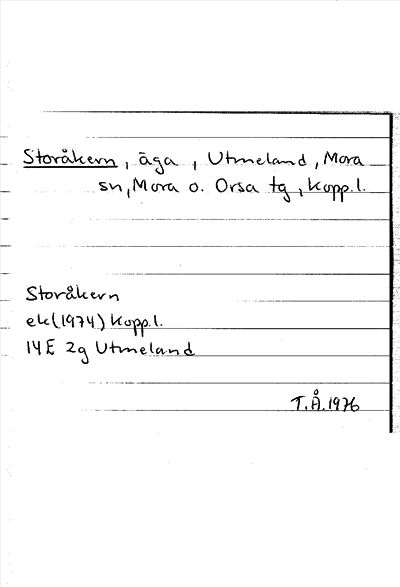 Storåkern, äga, Utmeland, Mora
sn, Mora o. Orsa tg, Kopp.l.
Storåkern
ek(1974) Kopp.l.
14E 2g Utmeland
T.Å.1976